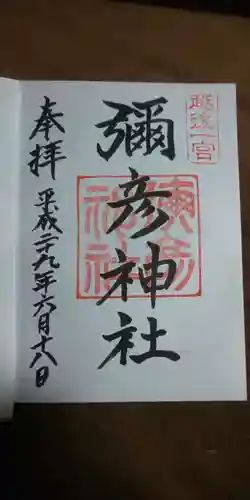 越後一宮
彌彦神社
彌彦神社
奉拝
平成二十九年六月十八日